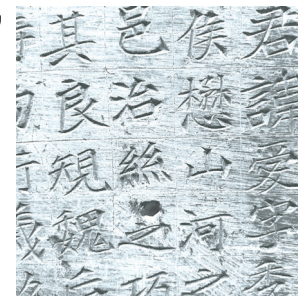 君諱愛字秀
侯懋山河之
邑治絲之巧
其良規魏